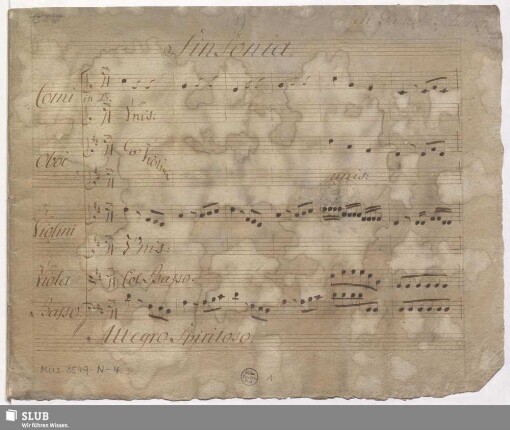 Sinfonia
Corni
in D.
Unis:
Oboe
Co Violini
unis:
Violini
Unis:
Viola
Col Basso.
Basso.
Allegro Spiritoso.
Mus. 8549-N-4
1
SLUB
Wir führen Wissen.